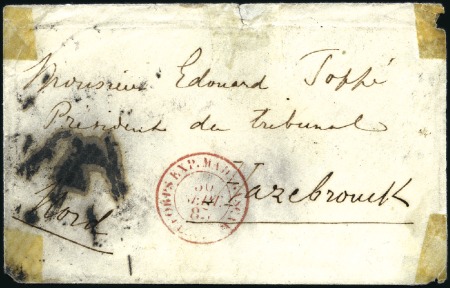 Monsieur Edouard Joppé
Président du tribunal
Hazebrouck
Nord
CORPS EXP. MADAGASCAR
30